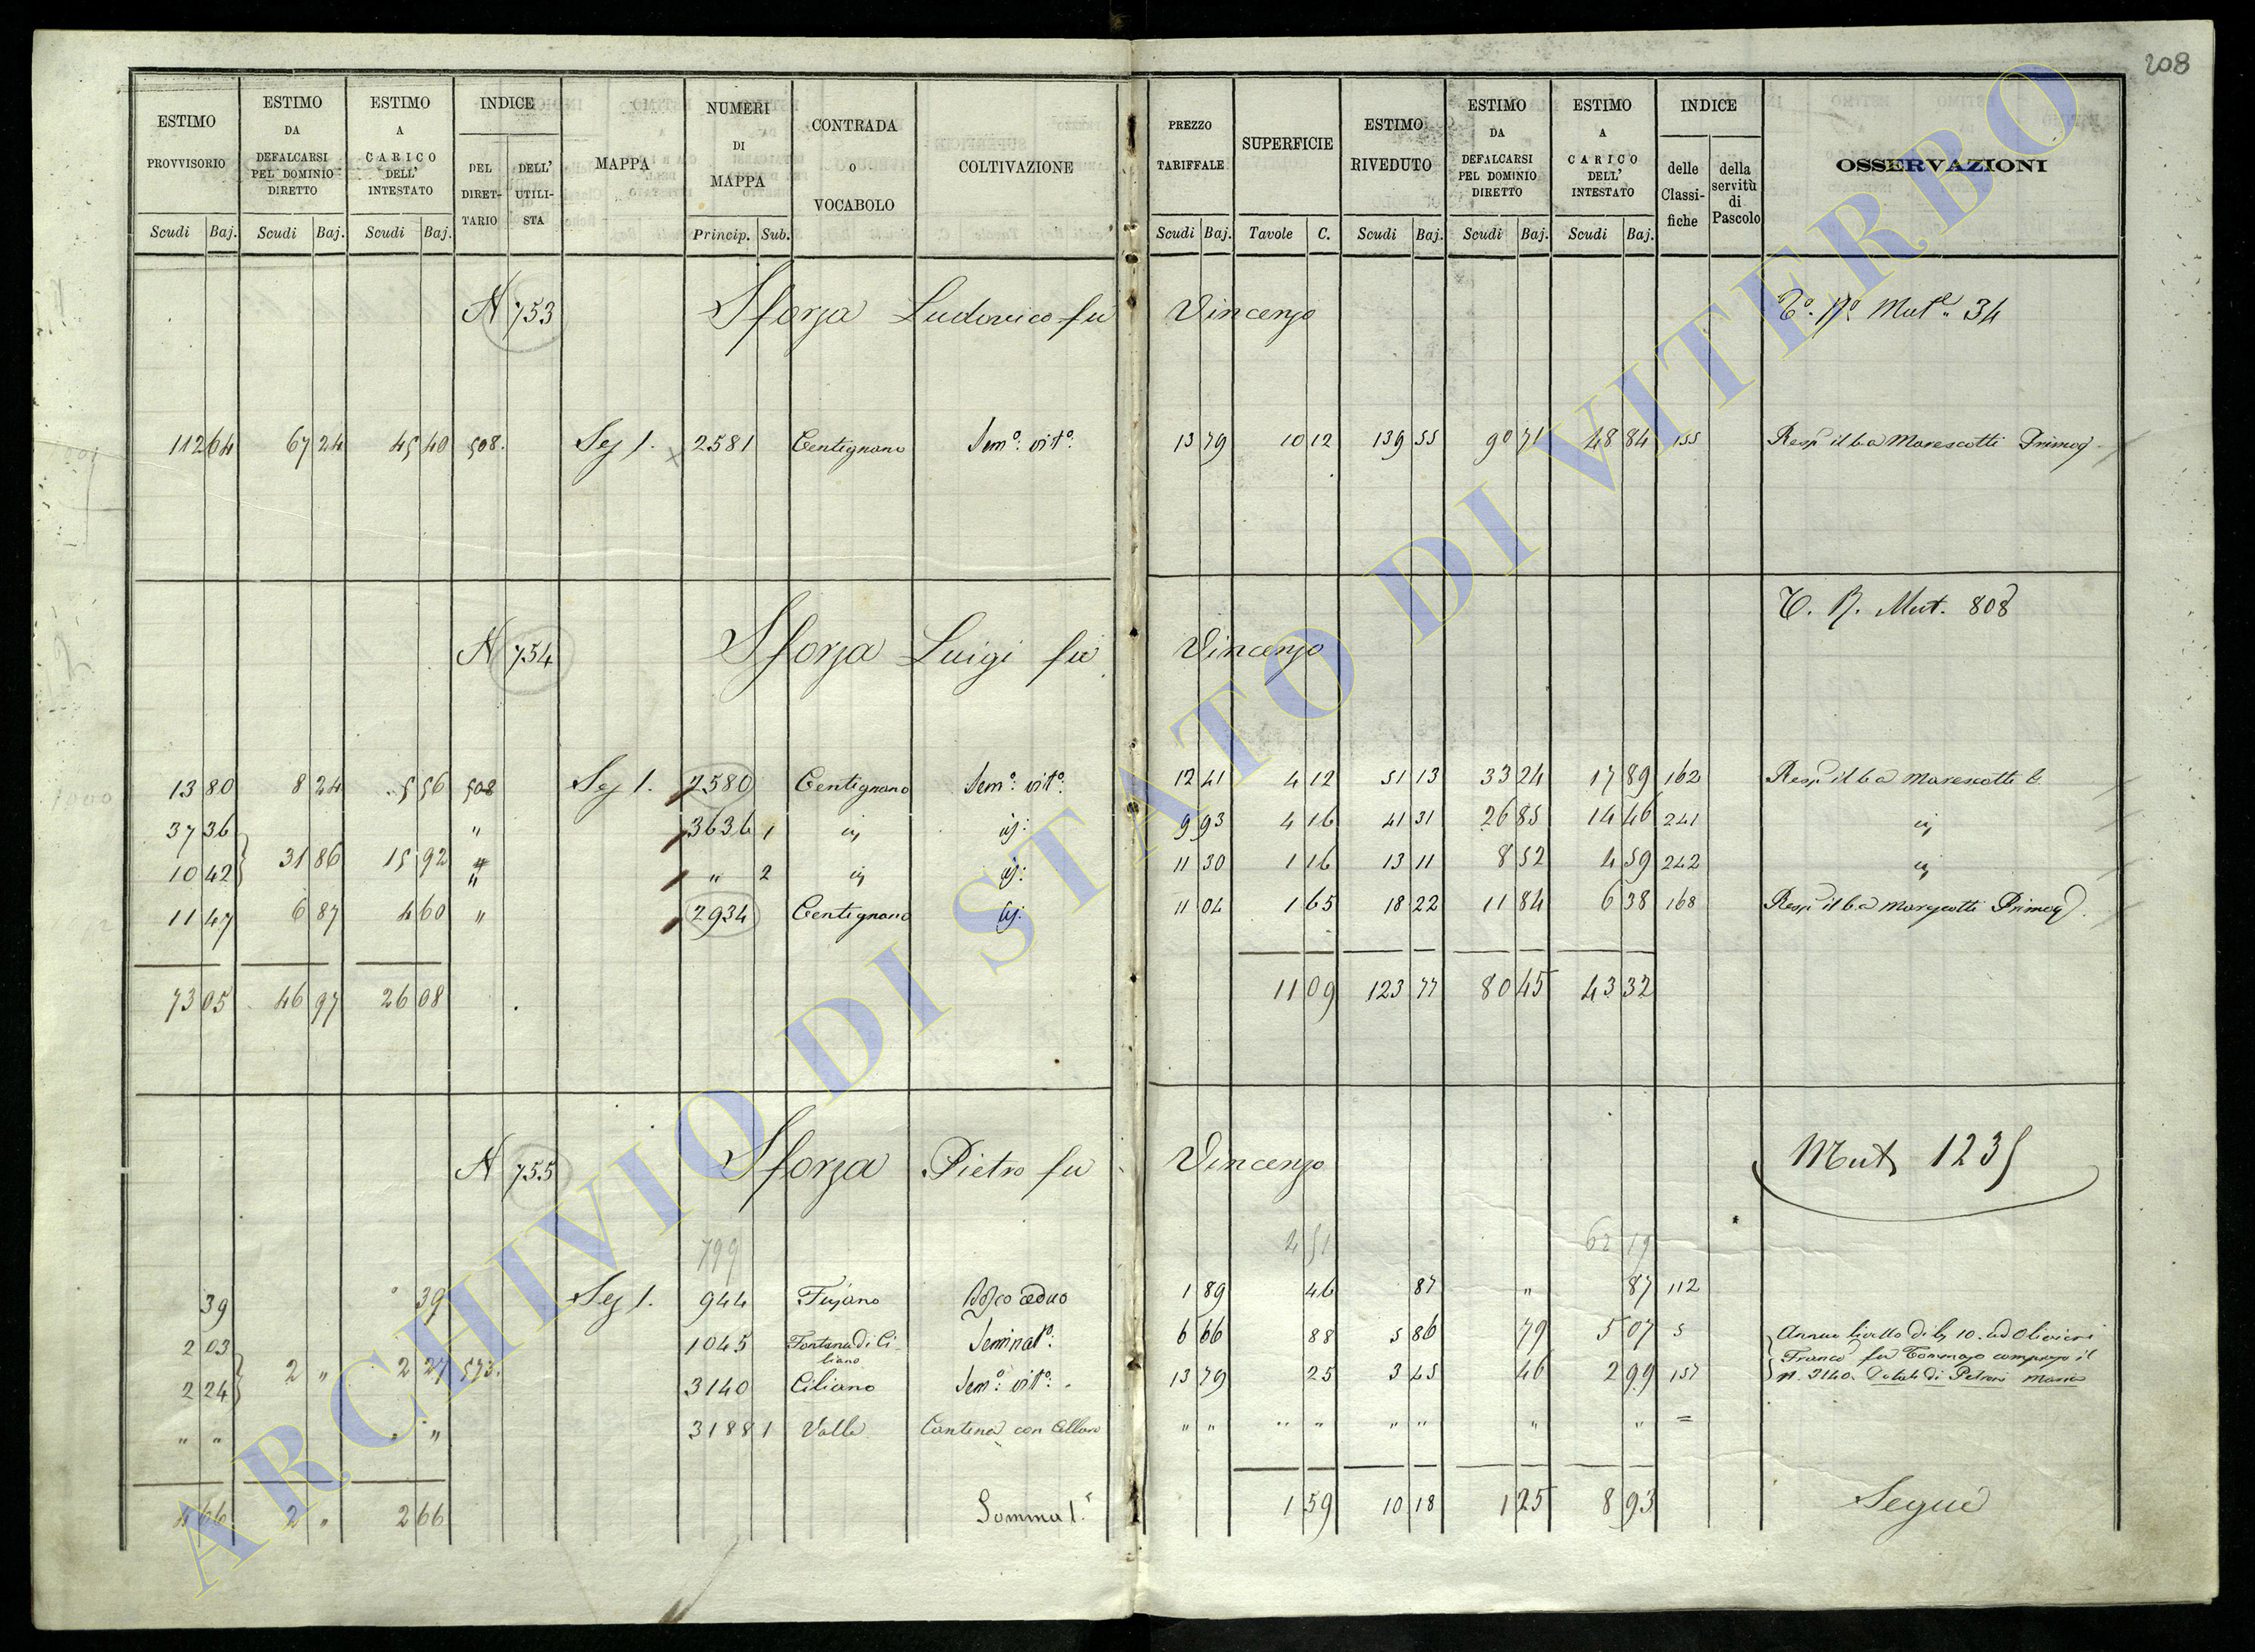 208
ESTIMO PROVVISORIO | ESTIMO DA DEFALCARSI PEL DOMINIO DIRETTO | ESTIMO A CARICO DELL' INTESTATO | INDICE DEL DIRET-TARIO | DELL' UTILI-STA | MAPPA | NUMERI DI MAPPA | CONTRADA O VOCABOLO | COLTIVAZIONE | PREZZO TARIFFALE | SUPERFICIE | ESTIMO RIVEDUTO | ESTIMO DA DEFALCARSI PEL DOMINIO DIRETTO | ESTIMO A CARICO DELL' INTESTATO | INDICE delle Classi-fiche | della servitù di Pascolo | OSSERVAZIONI
Scudi Baj. | Scudi Baj. | Scudi Baj. | Princip. Sub. | Scudi Baj. | Tavole C. | Scudi Baj. | Scudi Baj. | Scudi Baj.
N 753 Sforza Ludovico fu Vincenzo Mut.e 34
112 64 | 67 24 | 45 40 | 508. | Sez 1. | 2581 | Centignano | Sem.o vit.o | 13 79 | 10 12 | 139 55 | 90 71 | 48 84 | 155 | Marescotti Primog
T. R. Mut. 808
N 754 Sforza Luigi fu Vincenzo
13 80 | 8 24 | 5 56 | 508 | Sez 1. | 2580 | Centignano | Sem.o vit.o | 12 41 | 4 12 | 51 13 | 33 24 | 17 89 | 162 | Marescotti
37 36 | " | 3636 1 | 9 93 | 4 16 | 41 31 | 26 85 | 14 46 | 241
10 42 | 31 86 | 15 92 | " | " 2 | 11 30 | 1 16 | 13 11 | 8 52 | 4 59 | 242
11 47 | 6 87 | 4 60 | " | 2934 | Centignano | 11 04 | 1 65 | 18 22 | 11 84 | 6 38 | 168 | Marescotti Primog
73 05 | 46 97 | 26 08 | 11 09 | 123 77 | 80 45 | 43 32
N 755 Sforza Pietro fu Vincenzo Mut 1235
799 | 2 51 | 62 19
39 | 39 | Sez 1. | 944 | Fujano | Bosco ceduo | 1 89 | 46 | 87 | " | 87 | 112
2 03 | 1045 | Fontana di Ci-liano | Seminat.o | 6 66 | 88 | 5 86 | 79 | 5 07 | 5 | Annuo livello di 10. ad Olivieri
2 " | 2 27 | 573. | Franco fu Tommaso compreso il
2 24 | 3140 | Ciliano | Sem.o vit.o | 13 79 | 25 | 3 45 | 46 | 2 99 | 157 | n. 3140. di Petroni Maria
" " | " | 3188 1 | Valle | Cantina con | " " | " " | " " | " | " | =
4 66 | 2 " | 2 66 | Somma 1. | 1 59 | 10 18 | 1 25 | 8 93 | Segue
ARCHIVIO DI STATO DI VITERBO